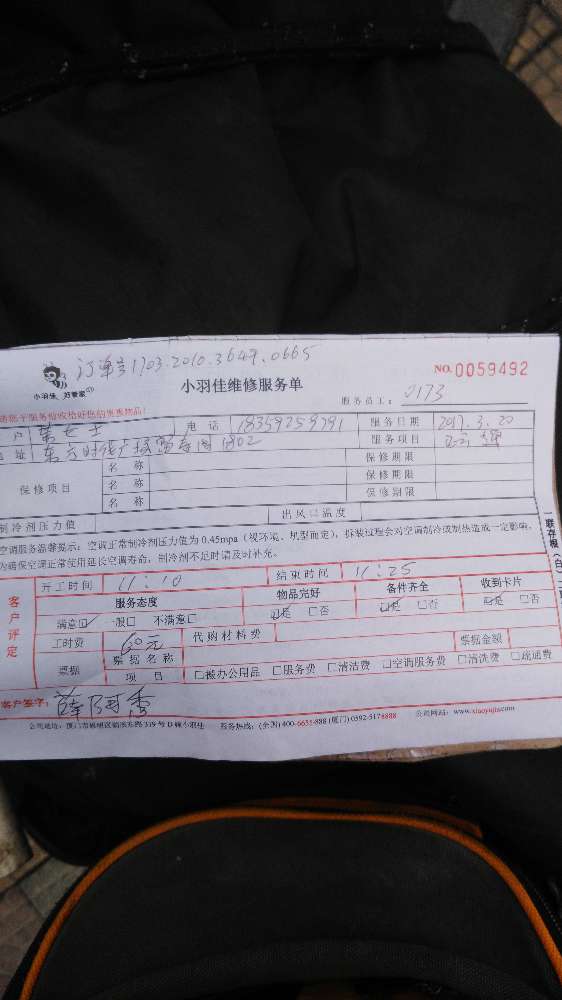 订单号1703.2010.3649.0665
小羽佳 好管家
小羽佳维修服务单
NO.0059492
服务员工：0173
户 女士 电话 18359259791 服务日期 2017.3.20
址 东方时代广场 1802 服务项目
保修项目 名称 保修期限
名称 保修期限
名称 保修期限
制冷剂压力值 出风口温度
空调服务温馨提示：空调正常制冷剂压力值为0.45mpa（视环境、机型而定），拆装过程会对空调制冷或制热造成一定影响。
为确保空调正常使用延长空调寿命，制冷剂不足时请及时补充。
一联存根（白）
客户评定
开工时间 11:10 结束时间 11:25
服务态度 物品完好 备件齐全 收到卡片
满意☑ 一般□ 不满意□ ☑是 □否 ☑是 □否 ☑是 □否
工时费 60元 代购材料费 票据金额
票据 票据名称
项目 □搬办公用品 □服务费 □清洁费 □空调服务费 □清洗费 □疏通费
客户签字：薛阿秀
服务热线：(全国)400-6655-888 (厦门)0592-5178888 公司网站：www.xiaoyujia.com